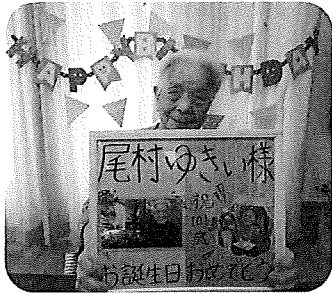 HAPPY BIRTHDAY
尾村ゆきい様
祝!!
101
歳
お誕生日おめでとう